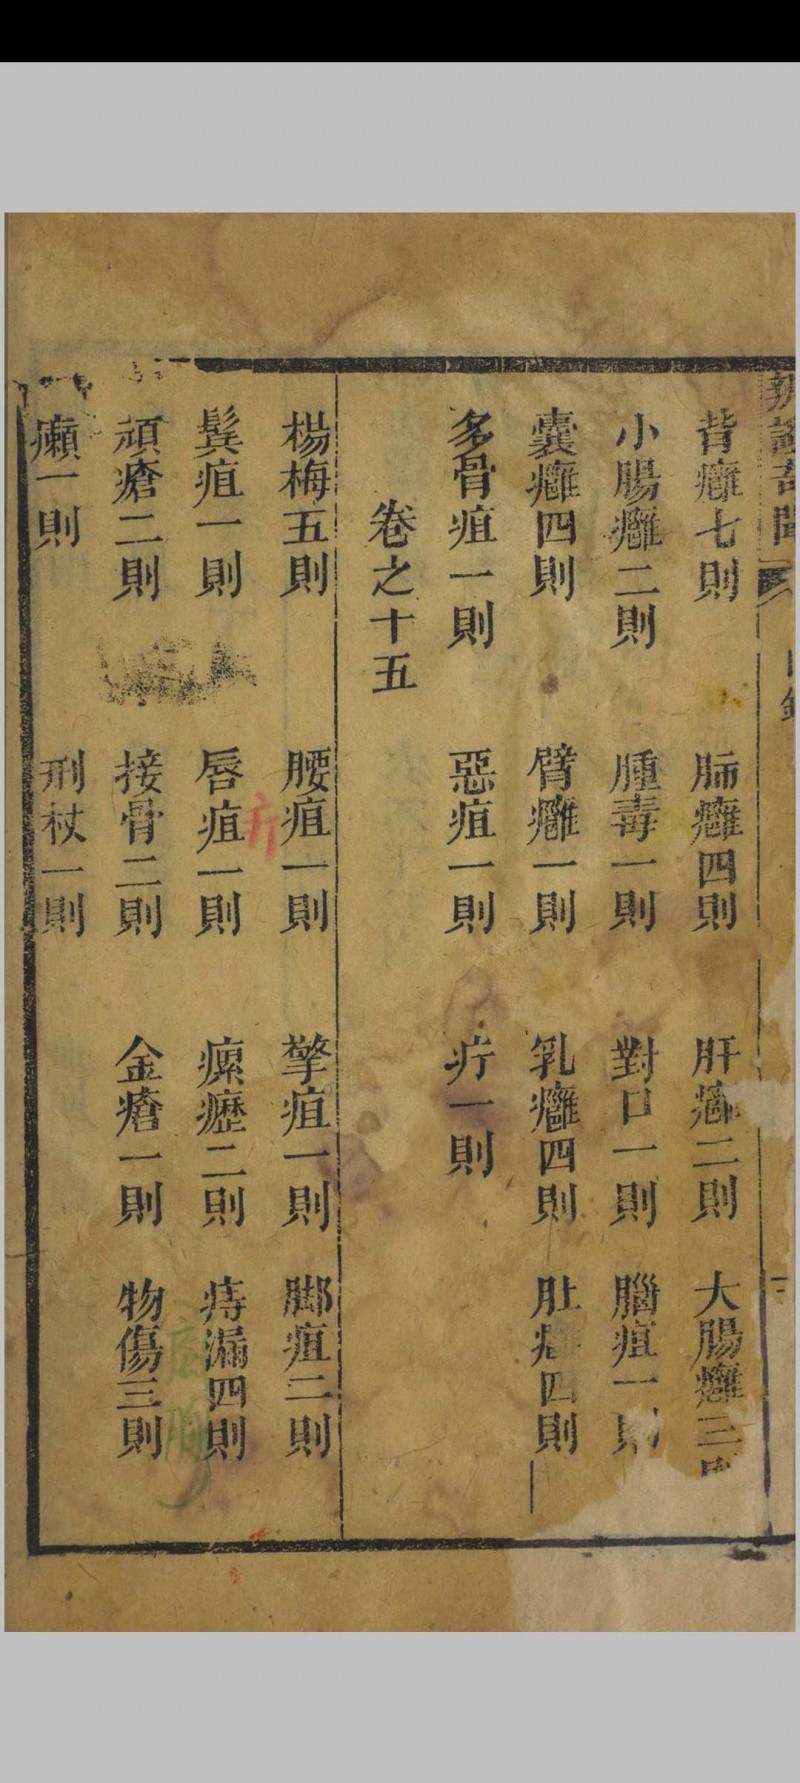 辨證奇聞
目錄
背癰七則 肺癰四則 肝癰二則 大腸癰三則
小腸癰二則 腫毒一則 對口一則 腦疽一則
囊癰四則 臂癰一則 乳癰四則 肚癰四則
多骨疽一則 惡疽一則 疔一則
卷之十五
楊梅五則 腰疽一則 擎疽一則 脚疽二則
鬂疽一則 唇疽一則 瘰癧二則 痔漏四則
疔
頑瘡二則 接骨二則 金瘡一則 物傷三則
癩一則 刑杖一則